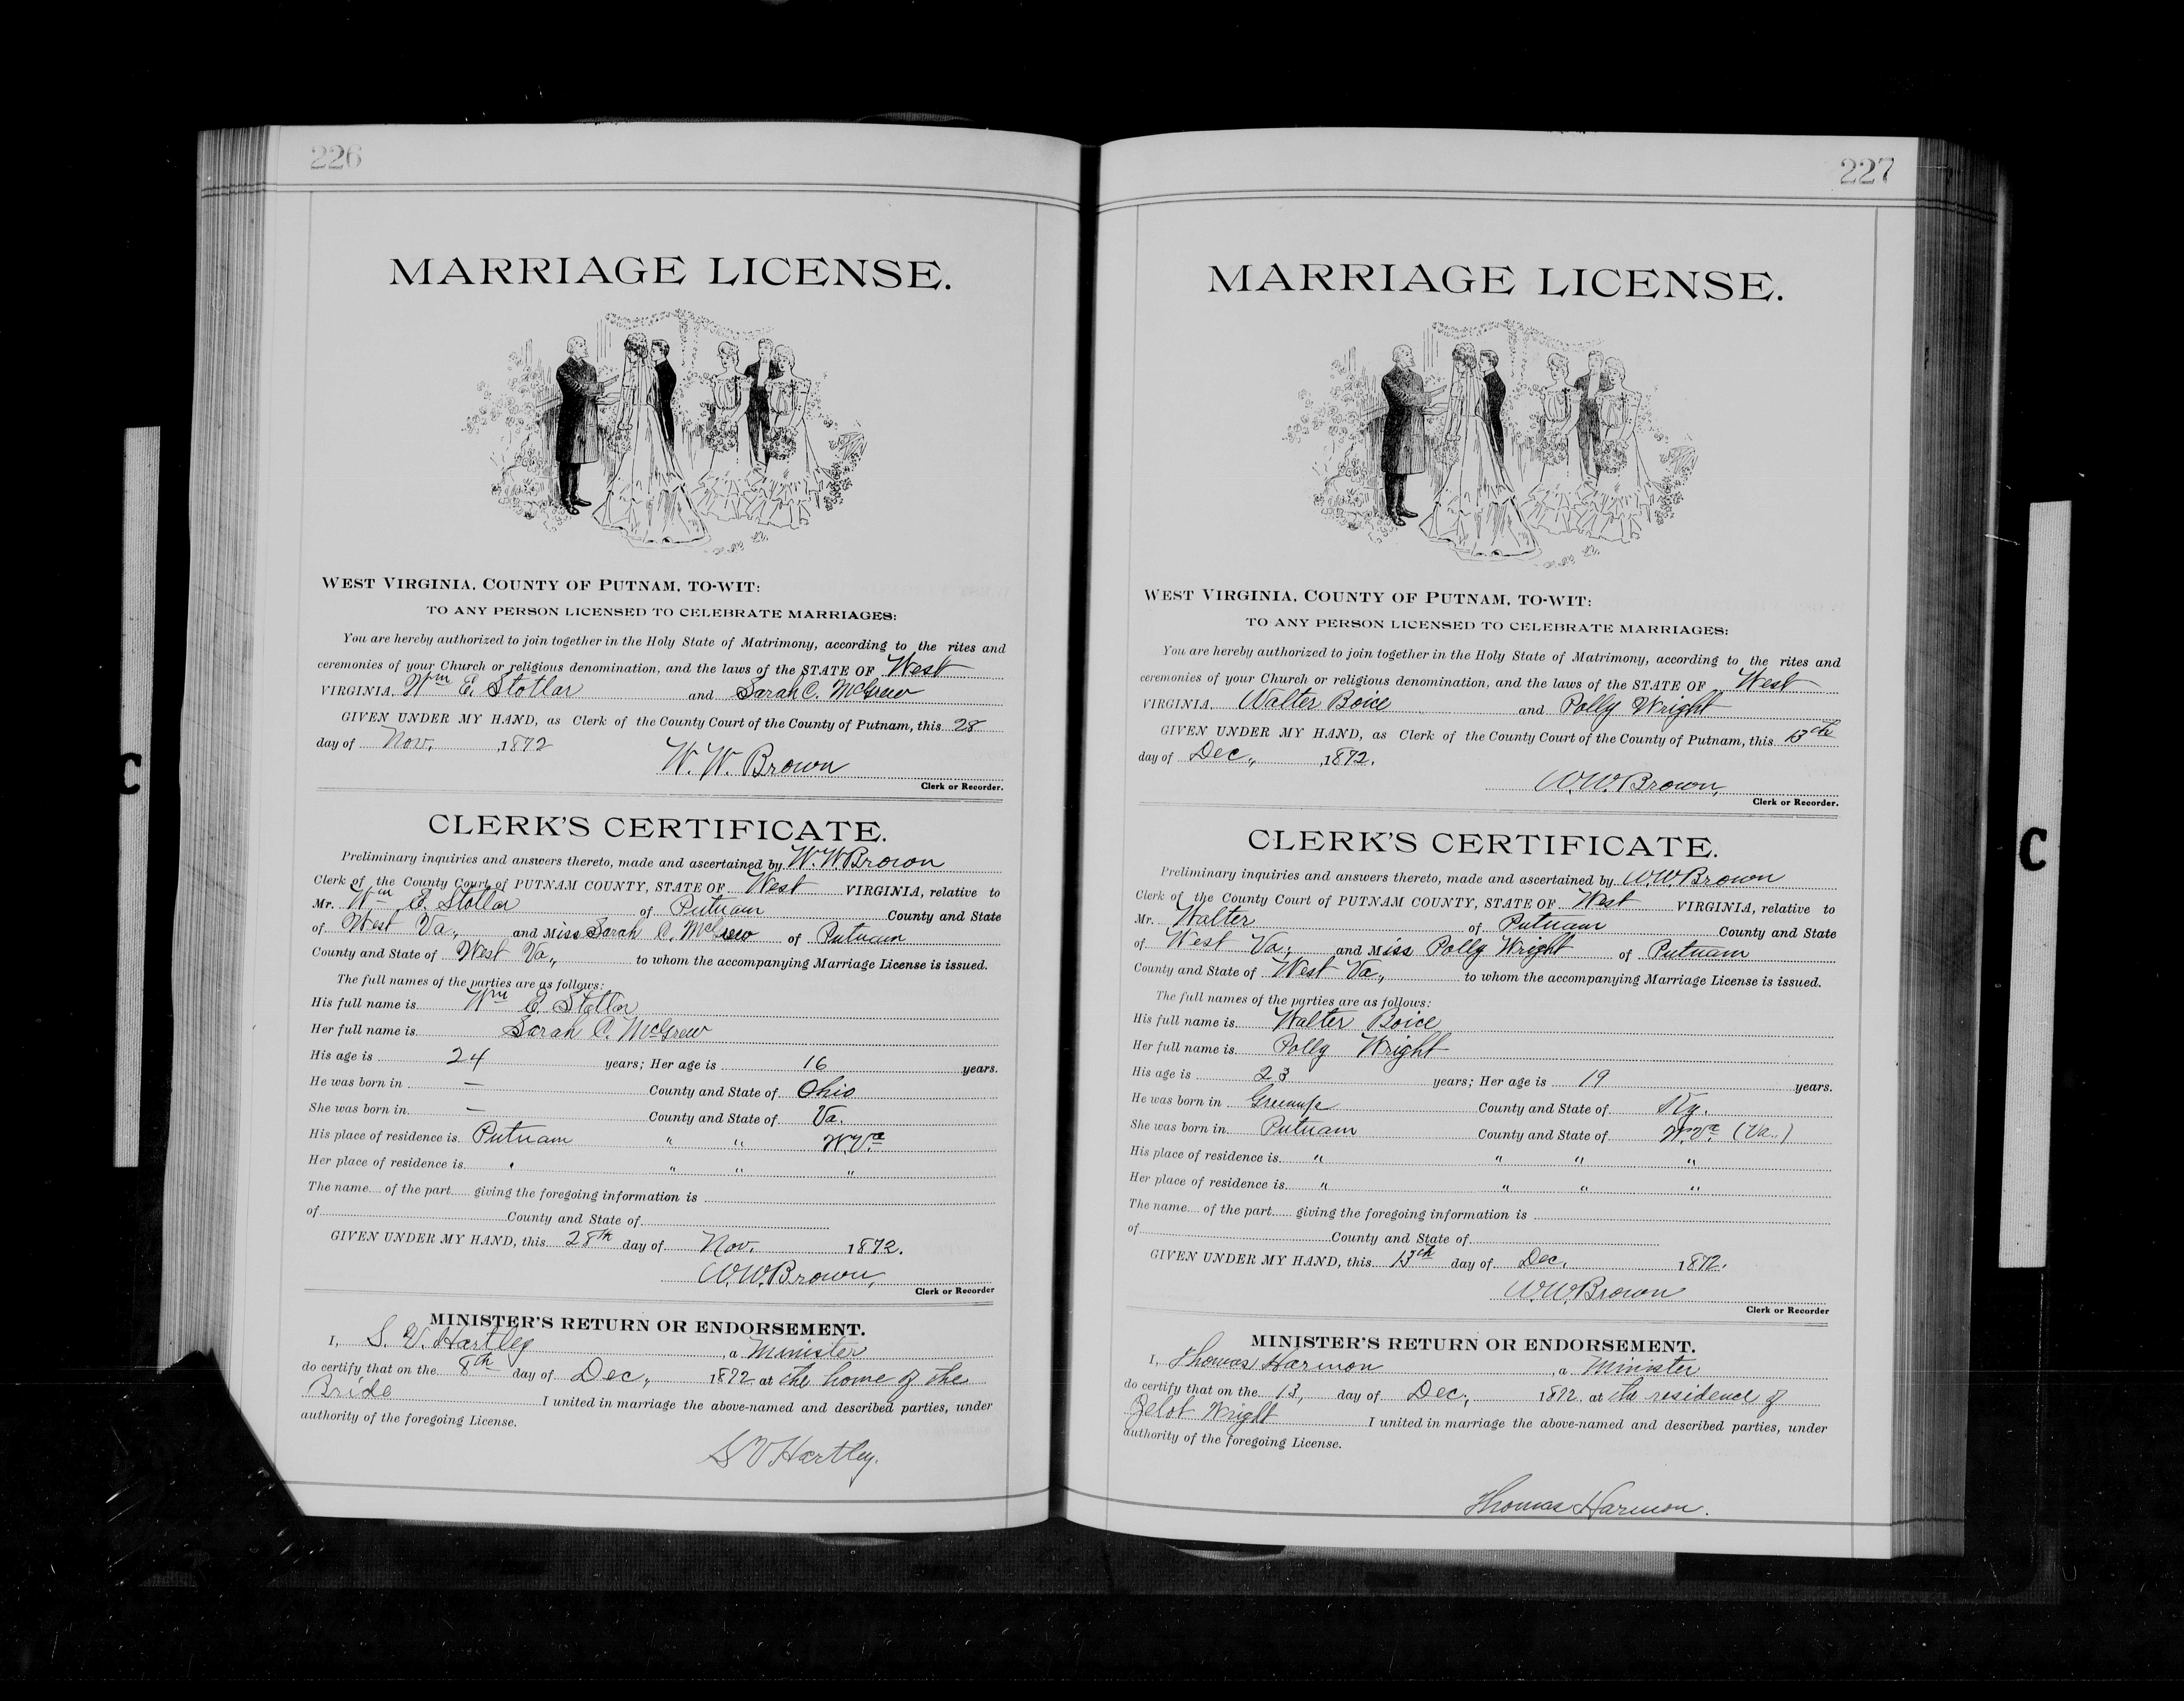 226
MARRIAGE LICENSE.
WEST VIRGINIA, COUNTY OF PUTNAM, TO-WIT:
TO ANY PERSON LICENSED TO CELEBRATE MARRIAGES:
You are hereby authorized to join together in the Holy State of Matrimony, according to the rites and
ceremonies of your Church or religious denomination, and the laws of the STATE OF West
VIRGINIA. Wm E. Stotlar and Sarah C. McGrew
GIVEN UNDER MY HAND, as Clerk of the County Court of the County of Putnam, this 28
day of Nov. 1872
W. W. Brown
Clerk or Recorder.
CLERK'S CERTIFICATE.
Preliminary inquiries and answers thereto, made and ascertained by W. W. Brown
Clerk of the County Court of PUTNAM COUNTY, STATE OF West VIRGINIA, relative to
Mr. Wm E. Stotlar of Putnam County and State
of West Va., and Miss Sarah C. McGrew of Putnam
County and State of West Va., to whom the accompanying Marriage License is issued.
The full names of the parties are as follows:
His full name is Wm E. Stotlar
Her full name is Sarah C. McGrew
His age is 24 years; Her age is 16 years.
He was born in — County and State of Ohio
She was born in — County and State of Va.
His place of residence is Putnam " " W.Va
Her place of residence is " " " "
The name of the part giving the foregoing information is
of County and State of
GIVEN UNDER MY HAND, this 28th day of Nov. 1872.
W.W. Brown,
Clerk or Recorder
MINISTER'S RETURN OR ENDORSEMENT.
I, S. V. Hartley, a Minister
do certify that on the 8th day of Dec., 1872 at the home of the
Bride I united in marriage the above-named and described parties, under
authority of the foregoing License.
S V Hartley.
227
MARRIAGE LICENSE.
WEST VIRGINIA, COUNTY OF PUTNAM, TO-WIT:
TO ANY PERSON LICENSED TO CELEBRATE MARRIAGES:
You are hereby authorized to join together in the Holy State of Matrimony, according to the rites and
ceremonies of your Church or religious denomination, and the laws of the STATE OF West
VIRGINIA. Walter Boice and Polly Wright
GIVEN UNDER MY HAND, as Clerk of the County Court of the County of Putnam, this 13th
day of Dec., 1872.
W.W. Brown,
Clerk or Recorder.
CLERK'S CERTIFICATE.
Preliminary inquiries and answers thereto, made and ascertained by W.W. Brown
Clerk of the County Court of PUTNAM COUNTY, STATE OF West VIRGINIA, relative to
Mr. Walter of Putnam County and State
of West Va., and Miss Polly Wright of Putnam
County and State of West Va., to whom the accompanying Marriage License is issued.
The full names of the parties are as follows:
His full name is Walter Boice
Her full name is Polly Wright
His age is 23 years; Her age is 19 years.
He was born in Greenup County and State of Ky.
She was born in Putnam County and State of W.Va. (Va.)
His place of residence is " " " "
Her place of residence is " " " "
The name of the part giving the foregoing information is
of County and State of
GIVEN UNDER MY HAND, this 13th day of Dec. 1872.
W.W. Brown
Clerk or Recorder
MINISTER'S RETURN OR ENDORSEMENT.
I, Thomas Harmon, a Minister
do certify that on the 13, day of Dec., 1872. at the residence of
Zelot Wright I united in marriage the above-named and described parties, under
authority of the foregoing License.
Thomas Harmon.
C
C